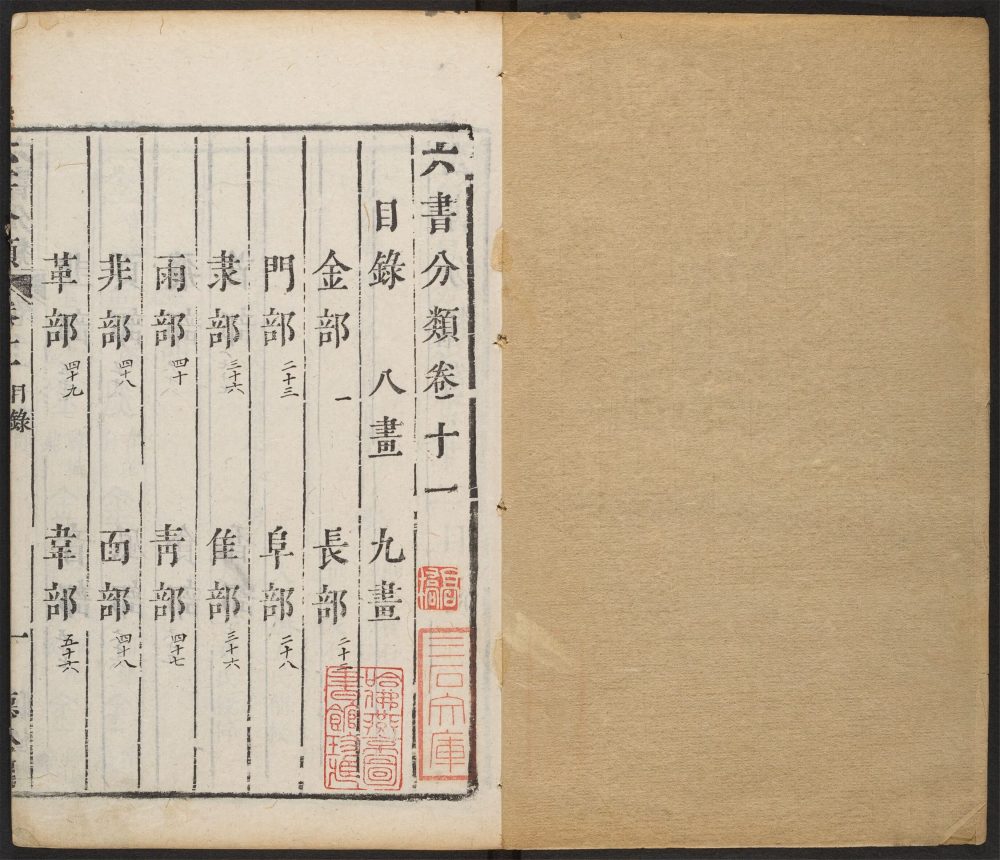 六書分類卷十一
目錄 八畫 九畫
金部 一 長部
門部 二十三 阜部 二十八
隶部 三十六 隹部 三十六
雨部 四十 靑部 四十七
非部 四十八 面部 四十八
革部 四十九 韋部 五十六
目錄
一
三石文庫
哈佛燕京圖書館珍藏